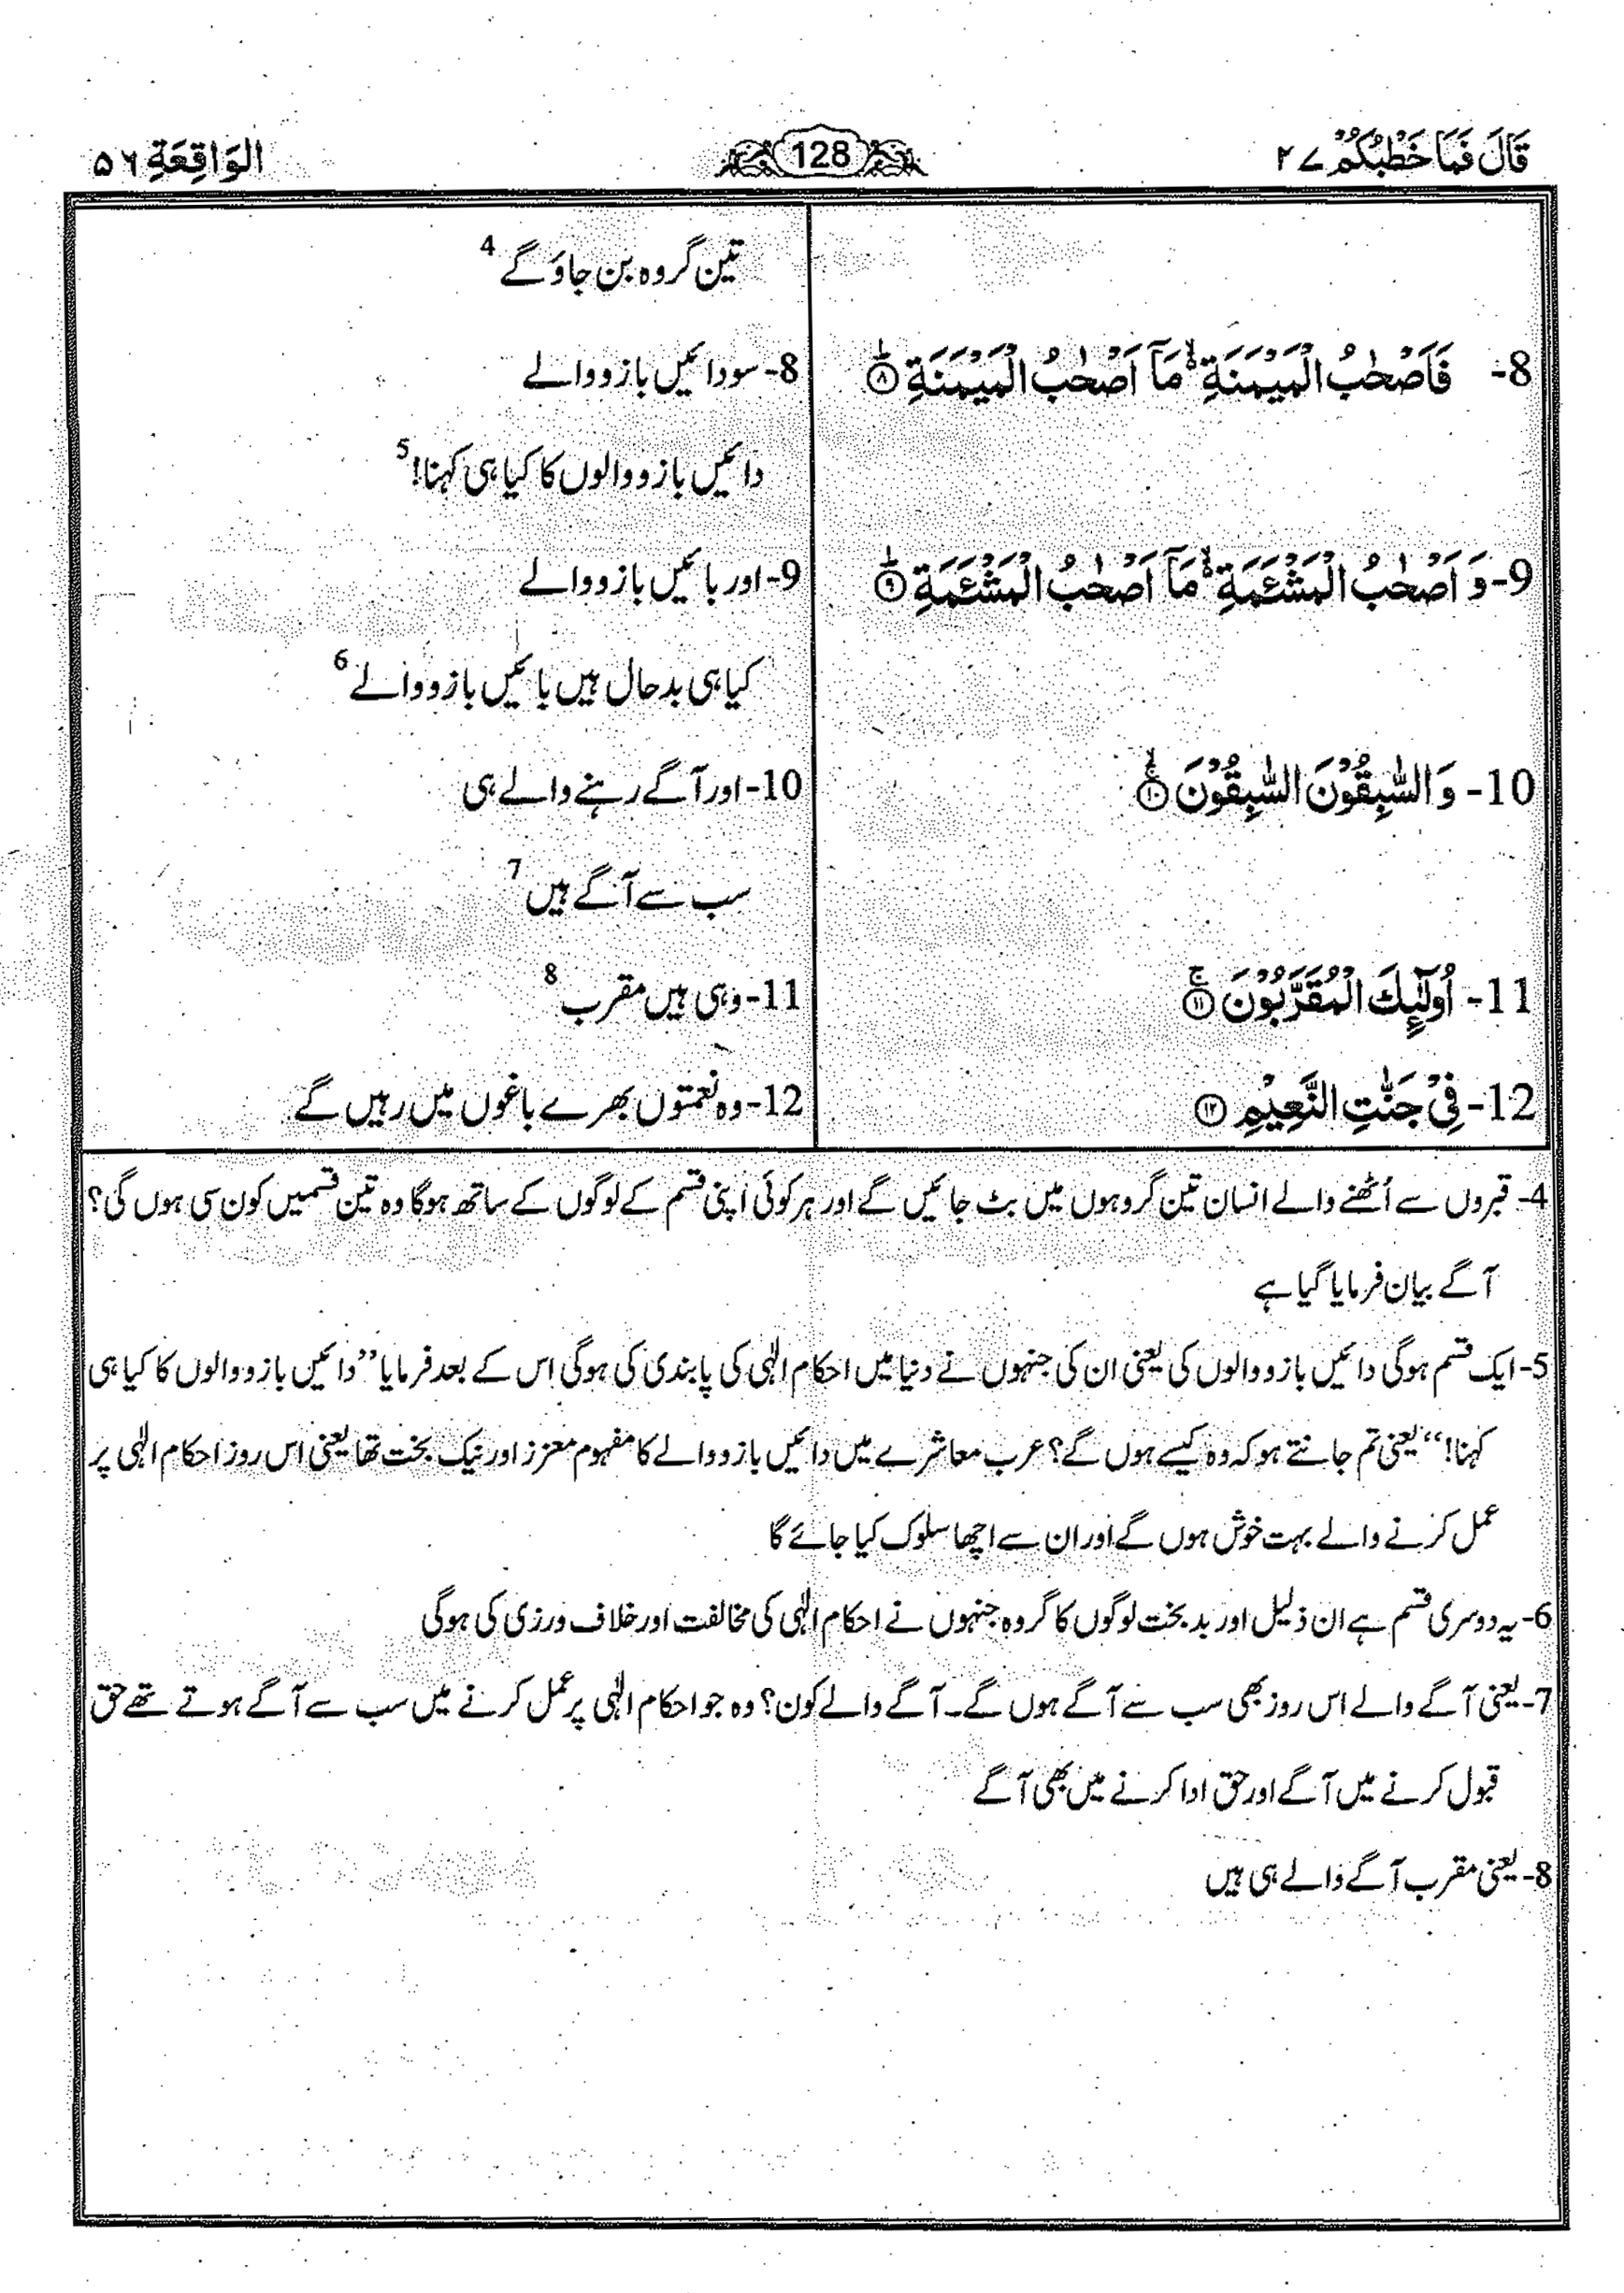 قَالَ فَمَا خَطْبُكُمْ ۲۷
128
الوَاقِعَةِ ۵۶
تین گروہ بن جاؤ گے 4
8- فَاَصْحٰبُ الْمَيْمَنَةِ ۙ مَاۤ اَصْحٰبُ الْمَيْمَنَةِ ؕ ۸
8- سو دائیں بازو والے
دائیں بازو والوں کا کیا ہی کہنا! 5
9- وَ اَصْحٰبُ الْمَشْـَٔمَةِ ۙ مَاۤ اَصْحٰبُ الْمَشْـَٔمَةِ ؕ ۹
9- اور بائیں بازو والے
کیا ہی بدحال ہیں بائیں بازو والے 6
10- وَ السّٰبِقُوْنَ السّٰبِقُوْنَ ۙ ۱۰
10- اور آگے رہنے والے ہی
سب سے آگے ہیں 7
11- اُولٰٓئِكَ الْمُقَرَّبُوْنَ ۚ ۱۱
11- وہی ہیں مقرب 8
12- فِيْ جَنّٰتِ النَّعِيْمِ ۱۲
12- وہ نعمتوں بھرے باغوں میں رہیں گے
4- قبروں سے اُٹھنے والے انسان تین گروہوں میں بٹ جائیں گے اور ہر کوئی اپنی قسم کے لوگوں کے ساتھ ہوگا وہ تین قسمیں کون سی ہوں گی؟
آگے بیان فرمایا گیا ہے
5- ایک قسم ہوگی دائیں بازو والوں کی یعنی ان کی جنہوں نے دنیا میں احکام الٰہی کی پابندی کی ہوگی اس کے بعد فرمایا ’’دائیں بازو والوں کا کیا ہی
کہنا!‘‘ یعنی تم جانتے ہو کہ وہ کیسے ہوں گے؟ عرب معاشرے میں دائیں بازو والے کا مفہوم معزز اور نیک بخت تھا یعنی اس روز احکام الٰہی پر
عمل کرنے والے بہت خوش ہوں گے اور ان سے اچھا سلوک کیا جائے گا
6- یہ دوسری قسم ہے ان ذلیل اور بدبخت لوگوں کا گروہ جنہوں نے احکام الٰہی کی مخالفت اور خلاف ورزی کی ہوگی
7- یعنی آگے والے اس روز بھی سب سے آگے ہوں گے۔ آگے والے کون؟ وہ جو احکام الٰہی پر عمل کرنے میں سب سے آگے ہوتے تھے حق
قبول کرنے میں آگے اور حق ادا کرنے میں بھی آگے
8- یعنی مقرب آگے والے ہی ہیں